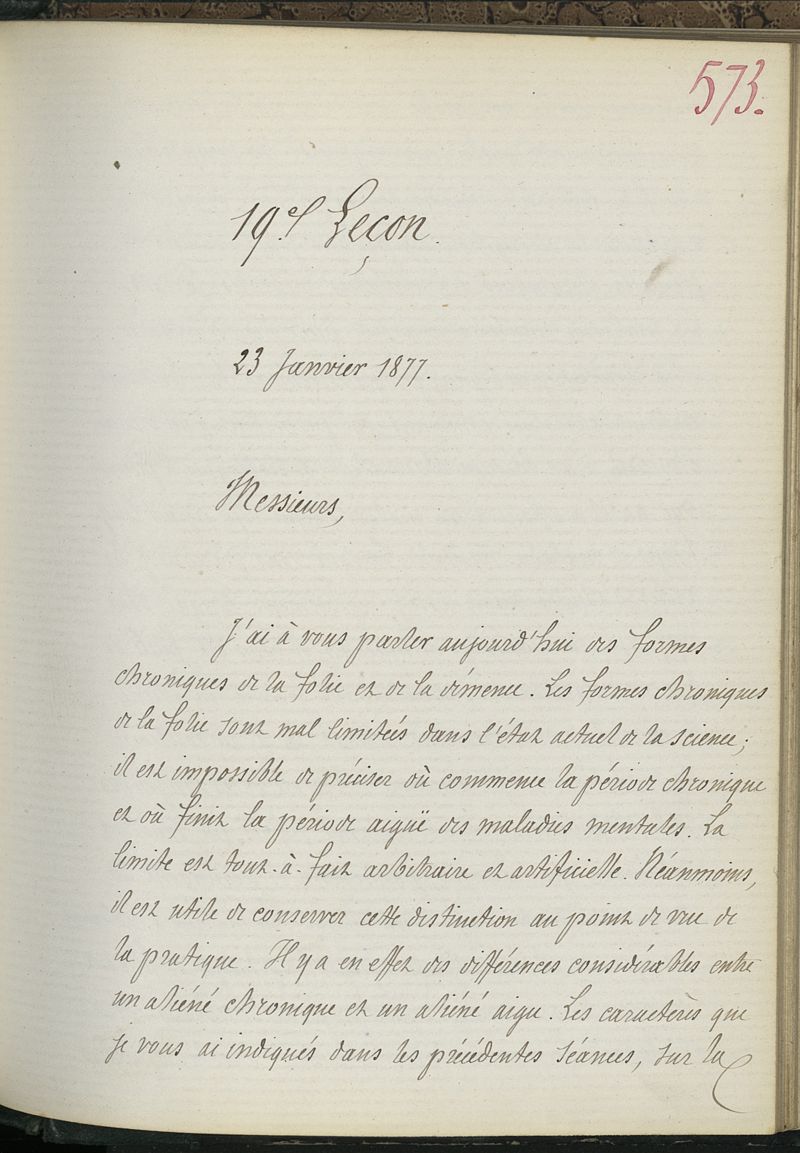 573.
19.e Leçon.
23 Janvier 1877.
Messieurs,
J'ai à vous parler aujourd'hui des formes
chroniques de la folie et de la démence. Les formes chroniques
de la folie sont mal limitées dans l'état actuel de la science;
il est impossible de préciser où commence la période chronique
et où finit la période aiguë des maladies mentales. La
limite est tout-à-fait arbitraire et artificielle. Néanmoins,
il est utile de conserver cette distinction au point de vue de
la pratique. Il y a en effet des différences considérables entre
un aliéné chronique et un aliéné aigu. Les caractères que
je vous ai indiqués dans les précédentes séances, sur la